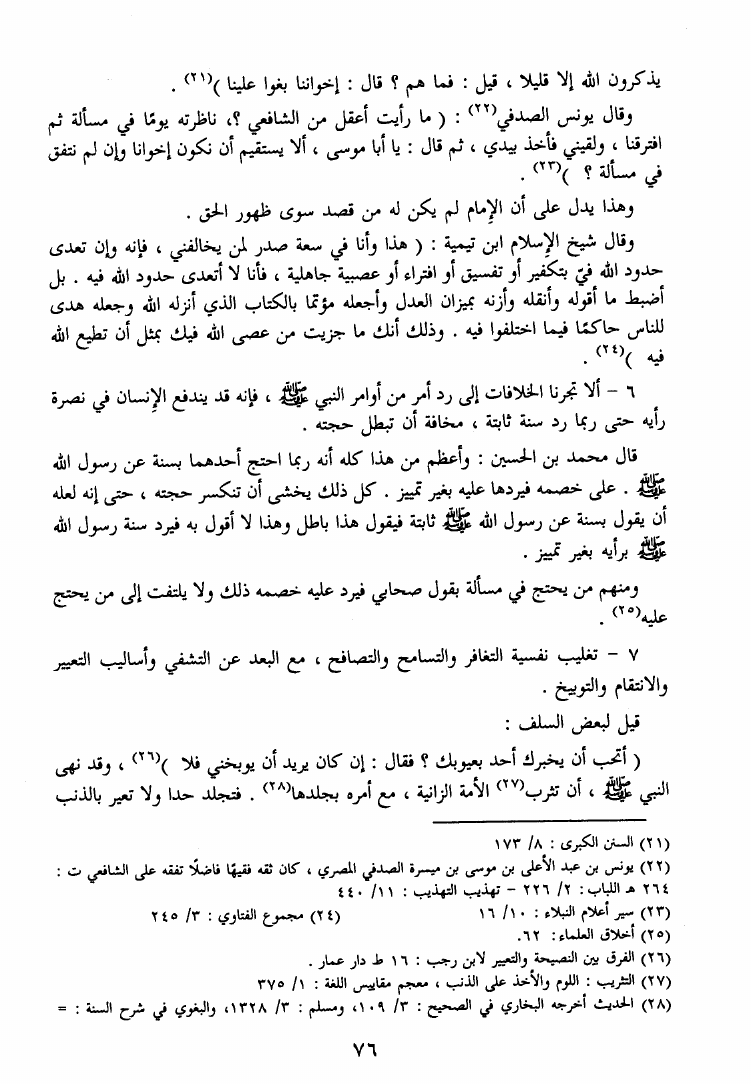 يذكرون الله إلا قليلا ، قيل : فما هم ؟ قال : إخواننا بغوا علينا )(٢١) .
وقال يونس الصدفي(٢٢) : ( ما رأيت أعقل من الشافعي ؟، ناظرته يومًا في مسألة ثم
افترقنا ، ولقيني فأخذ بيدي ، ثم قال : يا أبا موسى ، ألا يستقيم أن نكون إخوانا وإن لم نتفق
في مسألة ؟ )(٢٣) .
وهذا يدل على أن الإمام لم يكن له من قصد سوى ظهور الحق .
وقال شيخ الإسلام ابن تيمية : ( هذا وأنا في سعة صدر لمن يخالفني ، فإنه وإن تعدى
حدود الله فيّ بتكفير أو تفسيق أو افتراء أو عصبية جاهلية ، فأنا لا أتعدى حدود الله فيه . بل
أضبط ما أقوله وأنقله وأزنه بميزان العدل وأجعله مؤتما بالكتاب الذي أنزله الله وجعله هدى
للناس حاكمًا فيما اختلفوا فيه . وذلك أنك ما جزيت من عصى الله فيك بمثل أن تطيع الله
فيه )(٢٤) .
٦ – ألا تجرنا الخلافات إلى رد أمر من أوامر النبي ﷺ ، فإنه قد يندفع الإنسان في نصرة
رأيه حتى ربما رد سنة ثابتة ، مخافة أن تبطل حجته .
قال محمد بن الحسين : وأعظم من هذا كله أنه ربما احتج أحدهما بسنة عن رسول الله
ﷺ . على خصمه فيردها عليه بغير تمييز . كل ذلك يخشى أن تنكسر حجته ، حتى إنه لعله
أن يقول بسنة عن رسول الله ﷺ ثابتة فيقول هذا باطل وهذا لا أقول به فيرد سنة رسول الله
ﷺ برأيه بغير تمييز .
ومنهم من يحتج في مسألة بقول صحابي فيرد عليه خصمه ذلك ولا يلتفت إلى من يحتج
عليه(٢٥) .
٧ – تغليب نفسية التغافر والتسامح والتصافح ، مع البعد عن التشفي وأساليب التعيير
والانتقام والتوبيخ .
قيل لبعض السلف :
( أتحب أن يخبرك أحد بعيوبك ؟ فقال : إن كان يريد أن يوبخني فلا )(٢٦) ، وقد نهى
النبي ﷺ ، أن تثرب(٢٧) الأمة الزانية ، مع أمره بجلدها(٢٨) . فتجلد حدا ولا تعير بالذنب
(٢١) السنن الكبرى : ٨/ ١٧٣
(٢٢) يونس بن عبد الأعلى بن موسى بن ميسرة الصدفي المصري ، كان ثقه فقيهًا فاضلًا تفقه على الشافعي ت :
٢٦٤ هـ اللباب: ٢/ ٢٢٦ – تهذيب التهذيب : ١١/ ٤٤٠
(٢٣) سير أعلام النبلاء : ١٠/ ١٦ (٢٤) مجموع الفتاوي : ٣/ ٢٤٥
(٢٥) أخلاق العلماء: ٦٢.
(٢٦) الفرق بين النصيحة والتعيير لابن رجب : ١٦ ط دار عمار .
(٢٧) التثريب : اللوم والأخذ على الذنب ، معجم مقاييس اللغة : ١/ ٣٧٥
(٢٨) الحديث أخرجه البخاري في الصحيح : ٣/ ١٠٩، ومسلم : ٣/ ١٣٢٨، والبغوي في شرح السنة : =
٧٦